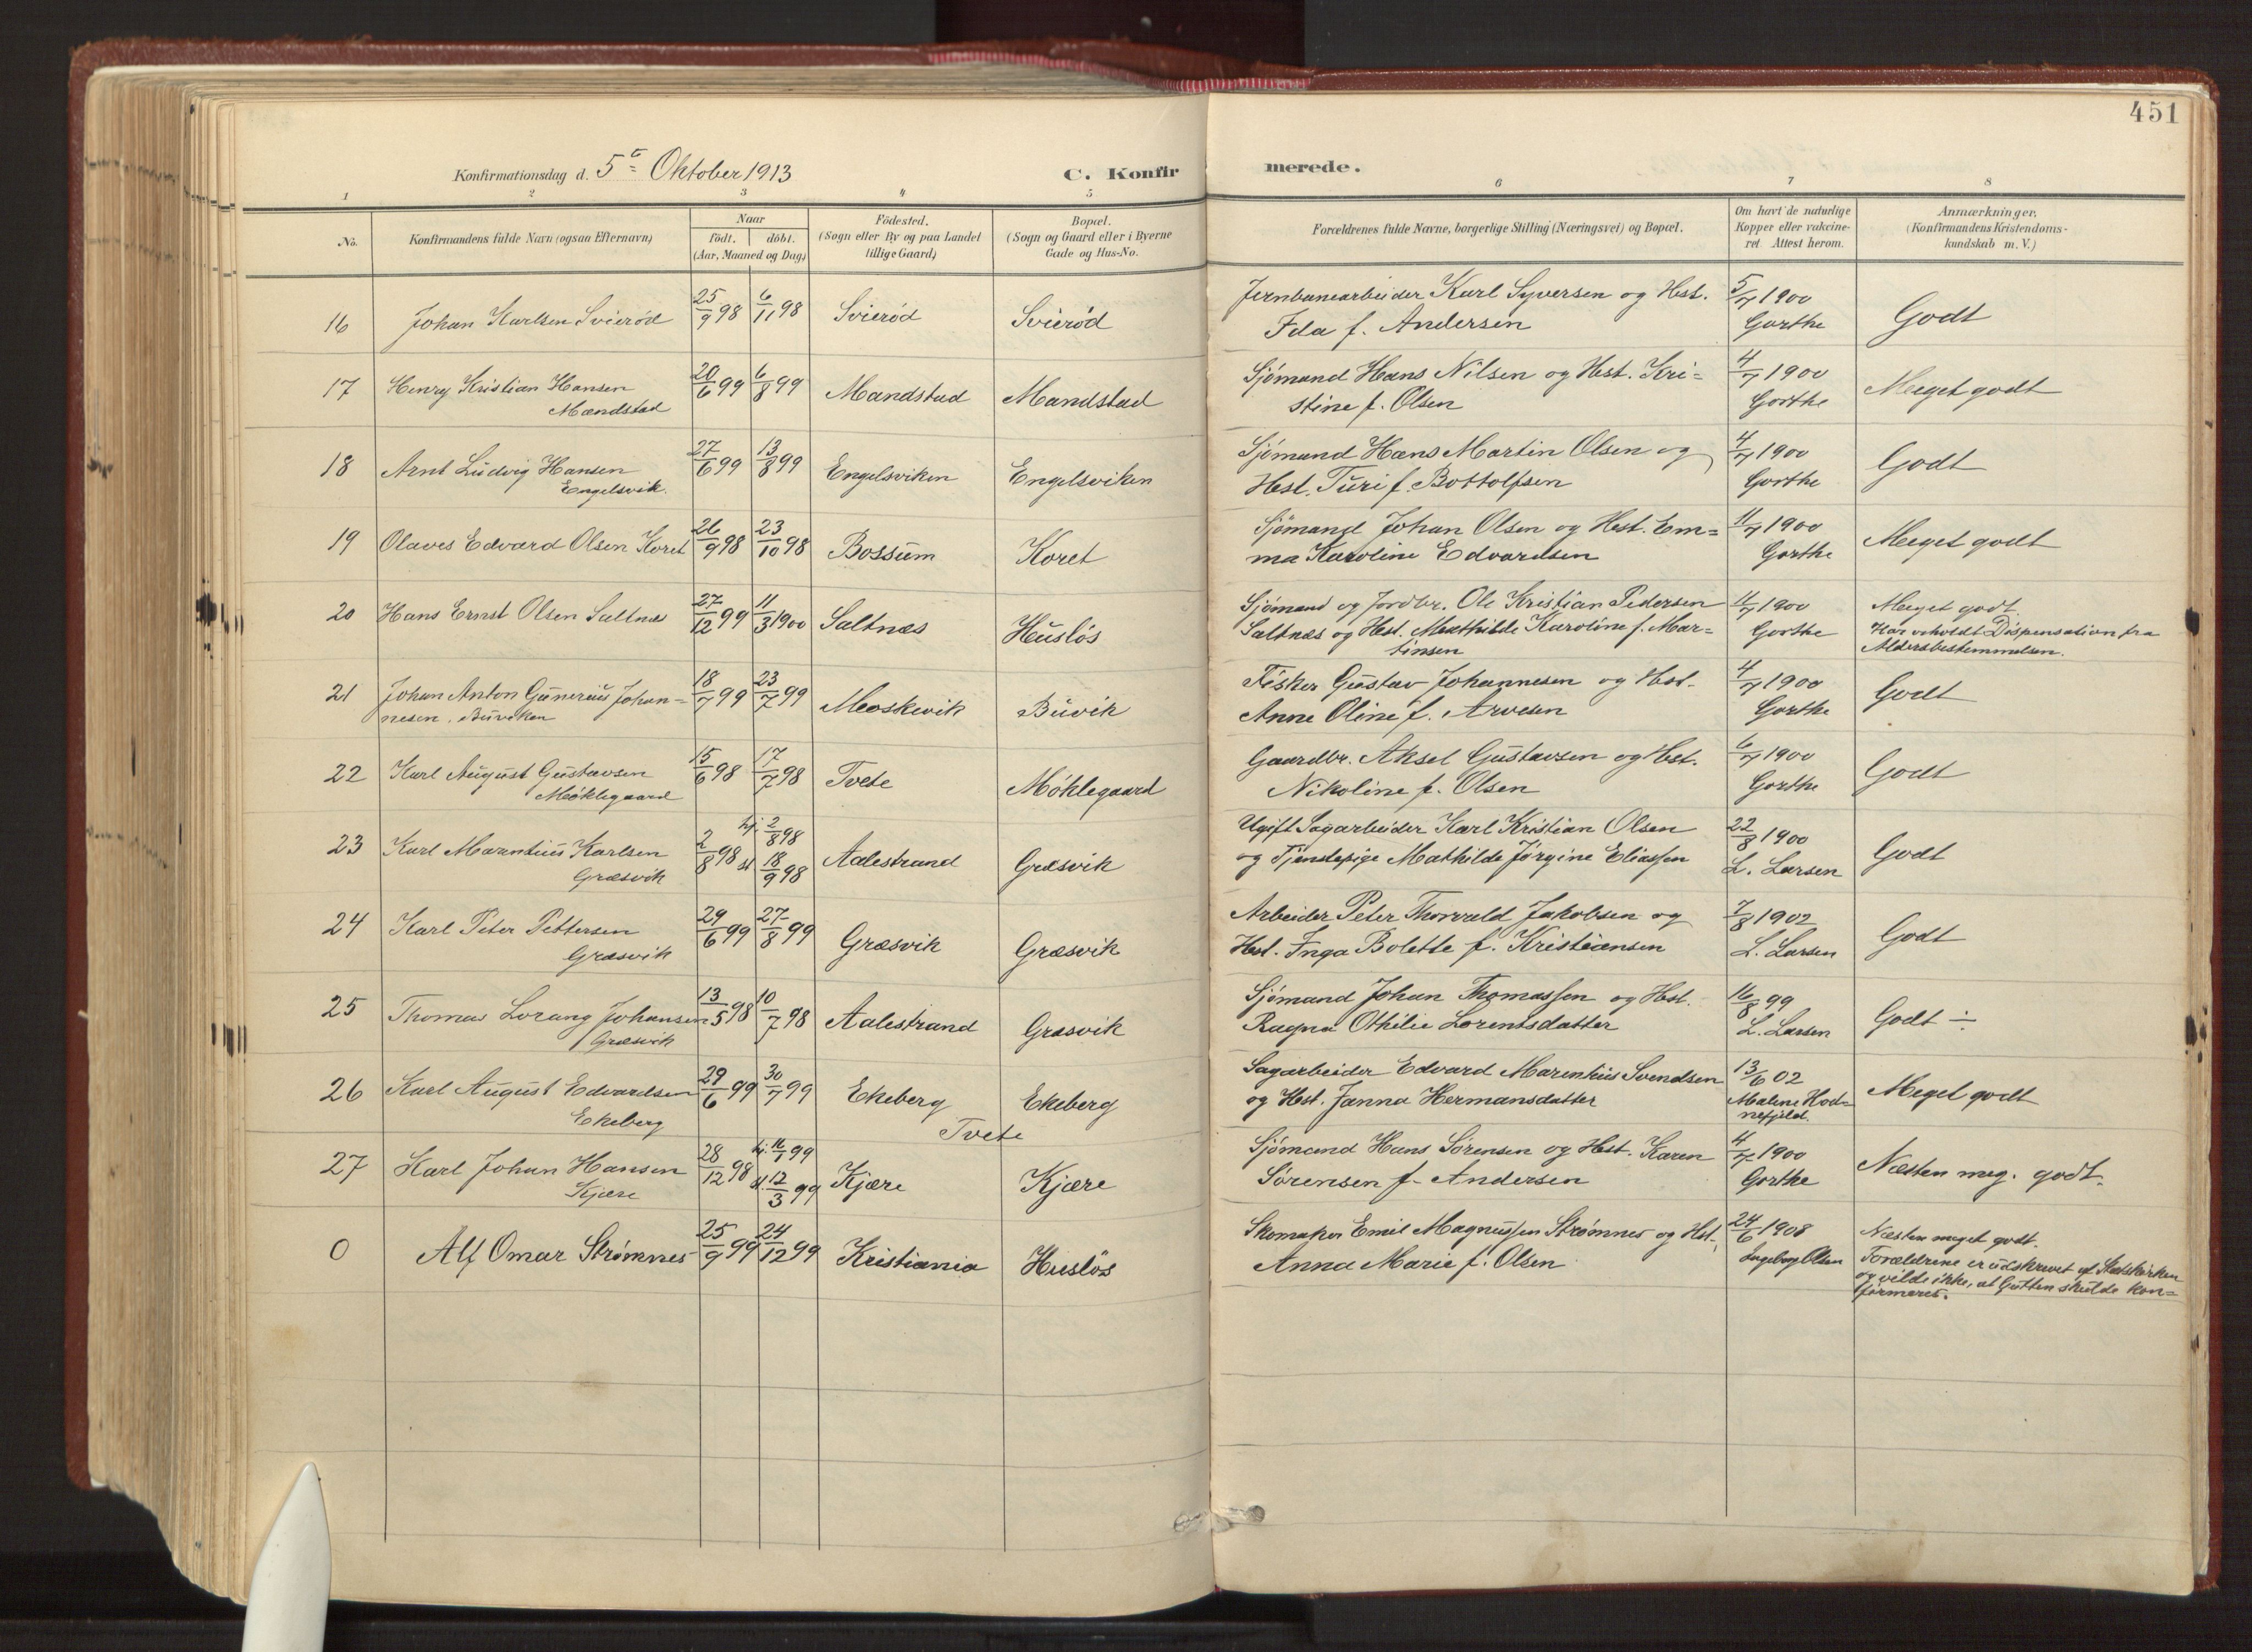 451
Konfirmationsdag d. 5te Oktober 1913 C. Konfirmerede.
1 2 3 4 5 6 7 8
No. Konfirmandens fulde Navn (ogsaa Efternavn) Naar født. døbt. (Aar, Maaned og Dag) Fødested. (Sogn eller By og paa Landet tillige Gaard) Bopæl. (Sogn og Gaard eller i Byerne Gade og Hus-No. Forældrenes fulde Navne, borgerlige Stilling (Næringsvei) og Bopæl. Om havt de naturlige Kopper eller vakcineret Attest herom. Anmærkninger. (Konfirmandens Kristendomskundskab m. V.)
16 Johan Karlsen Svierød 25/9 98 6/11 98 Svierød Svierød Jernbanearbeider Karl Syversen og Hst. 5/7 1900 Godt
Ida f. Andersen Gorthe
17 Henry Kristian Hansen 20/6 99 6/8 99 Mandstad Mandstad Sjömand Hans Nilsen og Hst. Kri= 4/7 1900 Meget godt
Mandstad stine f. Olsen Gorthe
18 Arnt Ludvig Hansen 27/6 99 13/8 99 Engelsviken Engelsviken Sjömand Hans Martin Olsen og 4/7 1900 Godt
Engelsvik. Hst. Turi f. Bottolfsen Gorthe
19 Olaves Edvard Olsen Koret 26/9 98 23/10 98 Bossum Koret Sjömand Johan Olsen og Hst. Em= 11/7 1900 Meget godt
ma Karoline Edvardsen Gorthe
20 Hans Ernst Olsen Saltnæs 27/12 99 11/3 1900 Saltnæs Husløs Sjömand og Jordbr. Ole Kristian Pedersen 11/7 1900 Meget godt.
Saltnæs og Hst. Mathilde Karoline f. Mar= Gorthe Har erholdt Dispensation fra
tinsen Aldersbestemmelsen.
21 Johan Anton Gunerius Johan= 18/7 99 23/7 99 Moskevik Buvik Fisker Gustav Johannesen og Hst. 4/7 1900 Godt
nesen. Buviken Anne Oline f. Arvesen Gorthe
22 Karl August Gustavsen 15/6 98 17/7 98 Tvete Møklegaard Gaardbr. Aksel Gustavsen og Hst. 6/7 1900 Godt
Møklegaard Nikoline f. Olsen Gorthe
23 Karl Marentius Karlsen 2/8 98 hj. 2/8 98 st 18/9 98 Aalestrand Græsvik Ugift Sagarbeider Karl Kristian Olsen 22/8 1900 Godt
Græsvik og Tjenstepige Mathilde Jørgine Eliassen L. Larsen
24 Karl Peter Pettersen 29/6 99 27/8 99 Græsvik Græsvik Arbeider Peter Thorvald Jakobsen og 7/8 1902 Godt
Græsvik Hst. Inga Bolette f. Kristiansen L. Larsen
25 Thomas Lorang Johansen 13/5 98 10/7 98 Aalestrand Græsvik Sjömand Johan Thomassen og Hst. 16/8 99 Godt ÷
Græsvik Ragna Othilie Lorentsdatter L. Larsen
26 Karl August Edvardsen 29/6 99 30/7 99 Ekeberg Ekeberg Sagarbeider Edvard Marentius Svendsen 13/6 02 Meget godt
Ekeberg Tvete og Hst. Janna Hermansdatter Malene Hod=
nefjeld.
27 Karl Johan Hansen 28/12 98 hj. 11/1 99 st. 12/3 99 Kjære Kjære Sjömand Hans Sørensen og Hst. Karen 4/7 1900 Næsten meg. godt.
Kjære Sørensen f. Andersen Gorthe
0 Alf Omar Strømnes 25/9 99 24/12 99 Kristiania Husløs Skomaker Emil Magnussen Strømnes og Hst. 24/6 1908 Næsten meget godt.
Anna Marie f. Olsen Ingeborg Olsen Forældrene er udskrevet af Statskirken
og vilde ikke, at Gutten skulde kon=
firmeres.